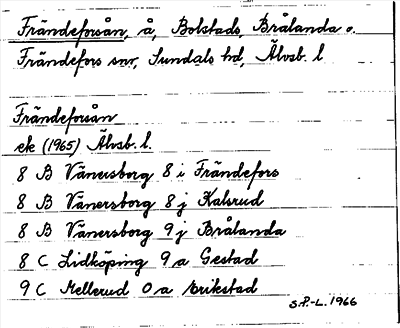 Frändeforsån, å, Bolstads, Brålanda o.
Frändefors snr, Sundals hd, Älvsb. l.
Frändeforsån
ek (1965) Älvsb. l.
8 B Vänersborg 8 i Frändefors
8 B Vänersborg 8 j Kalsrud
8 B Vänersborg 9 j Brålanda
8 C Lidköping 9 a Gestad
9 C Mellerud 0 a Erikstad
S.P.-L. 1966